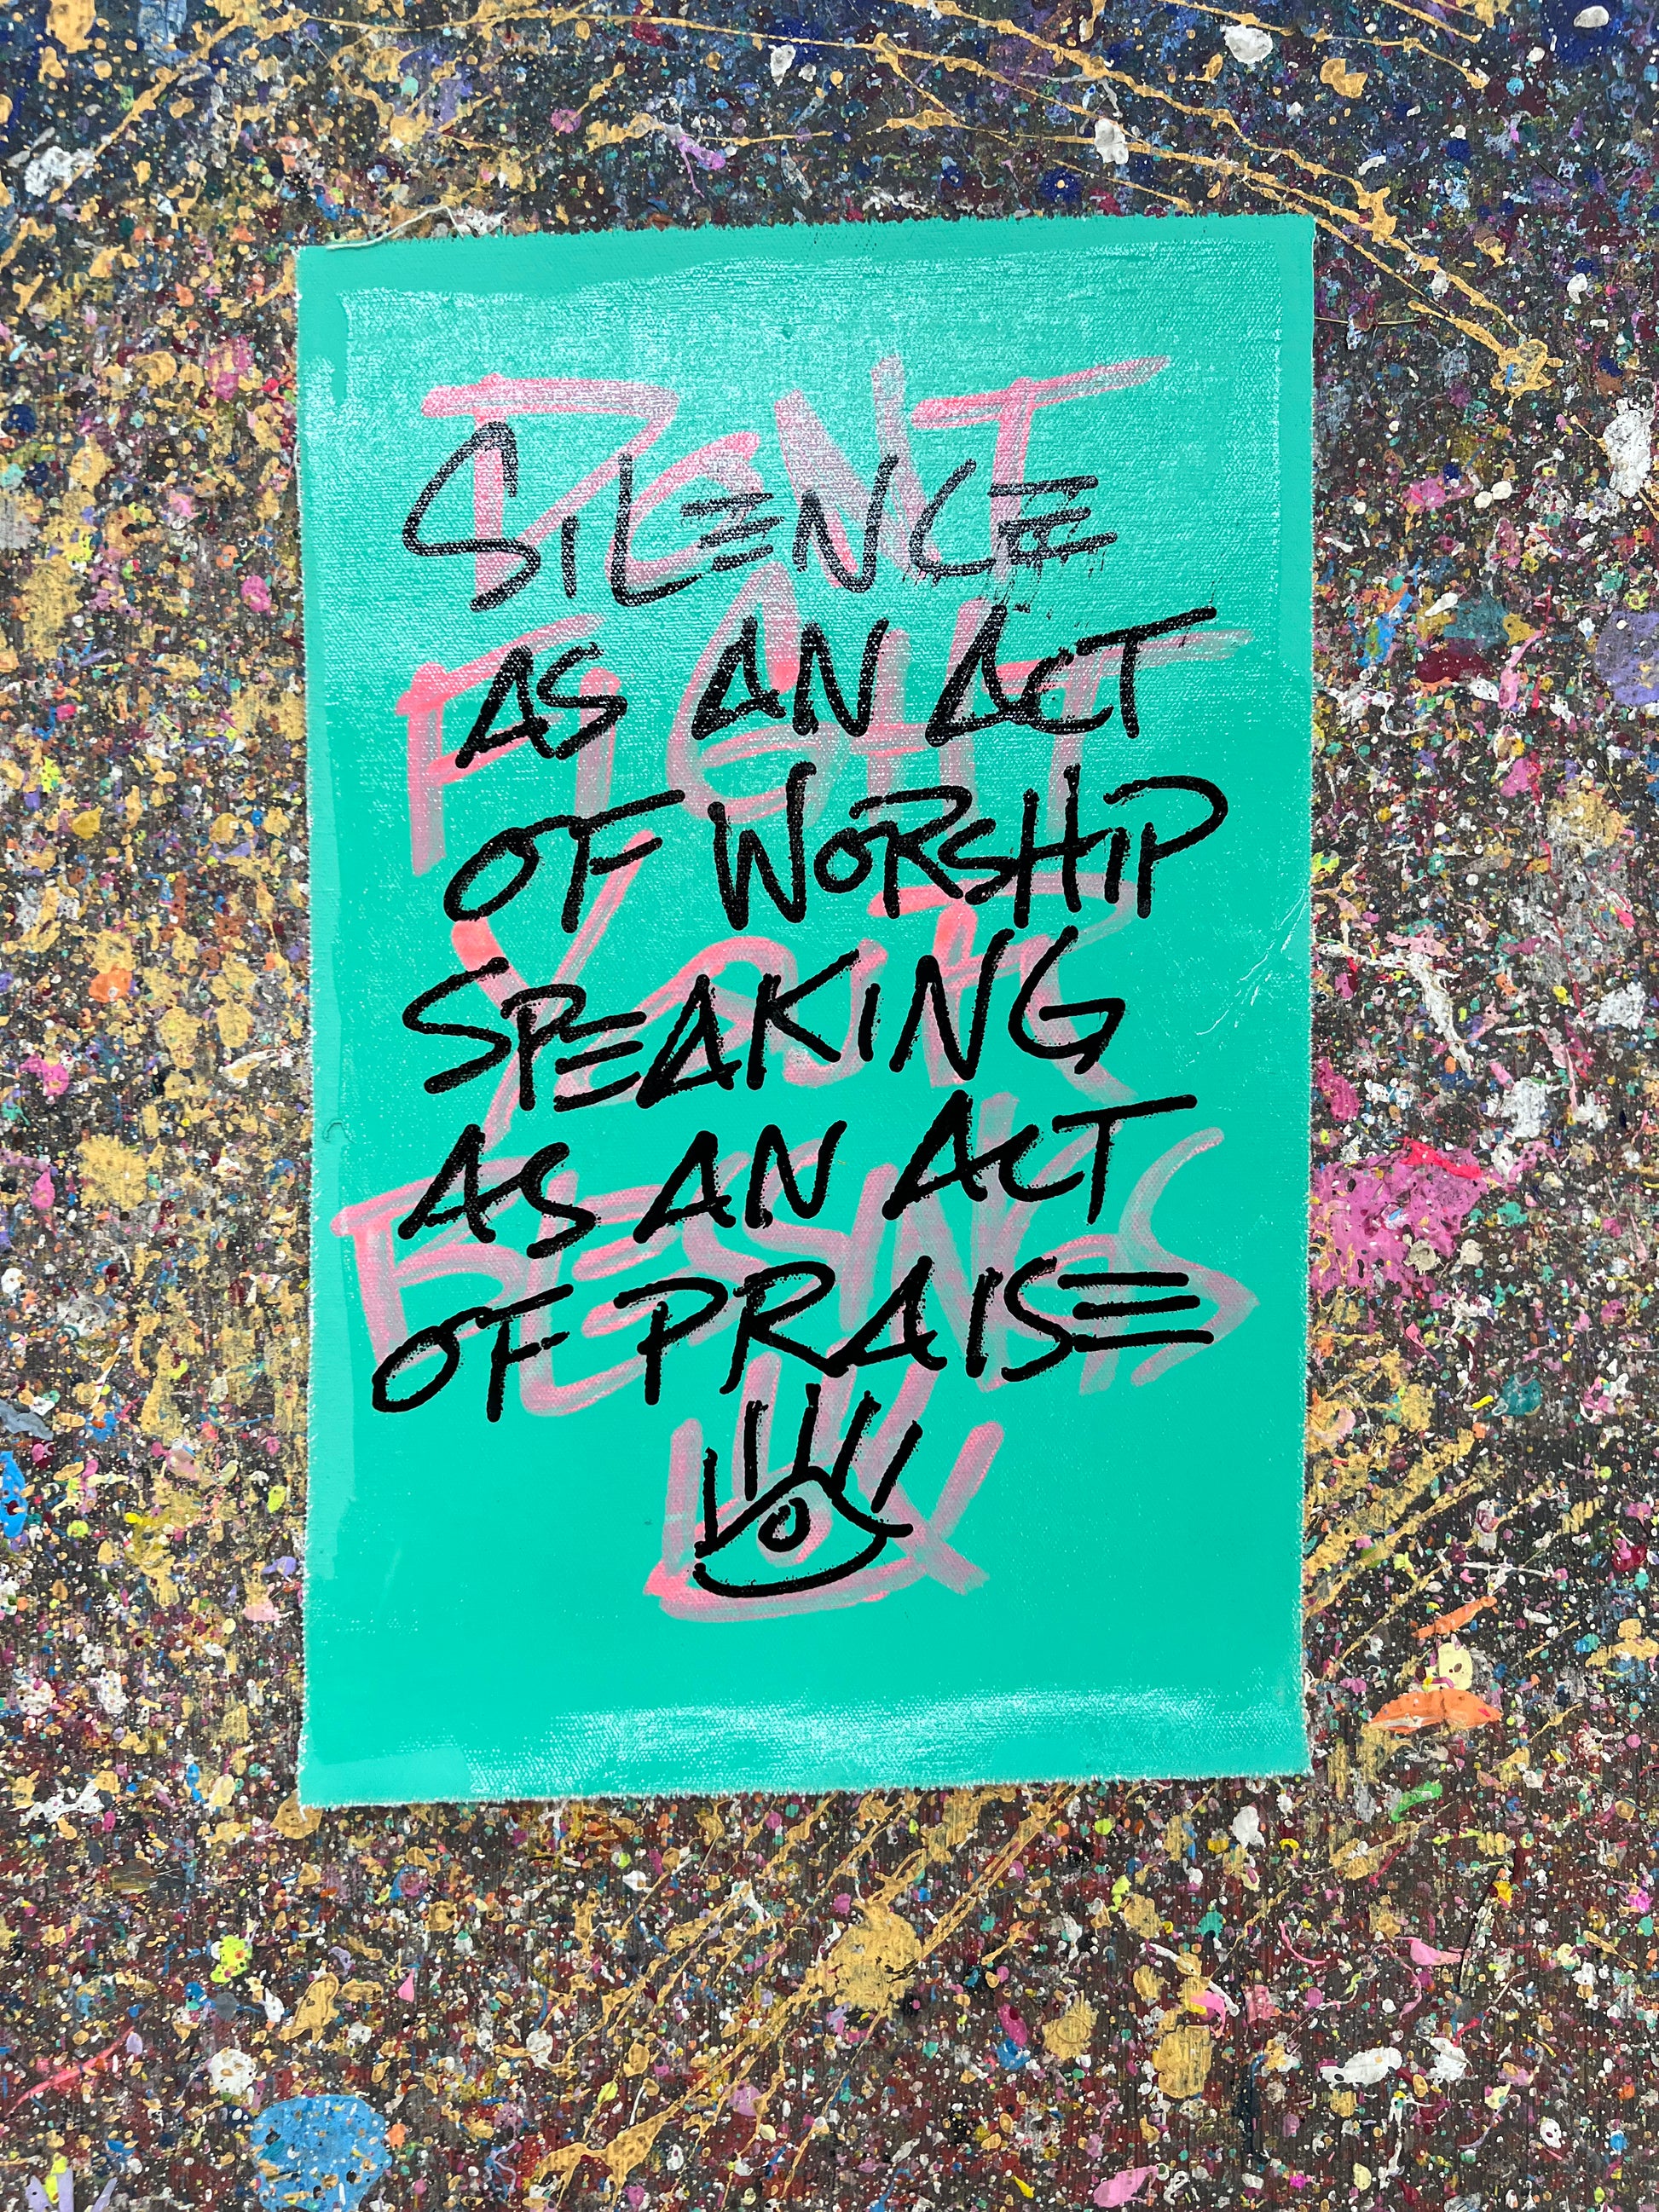 SILENCE
AS AN ACT
OF WORSHIP
SPEAKING
AS AN ACT
OF PRAISE
DONT
FIGHT
YOUR
BLESSINGS